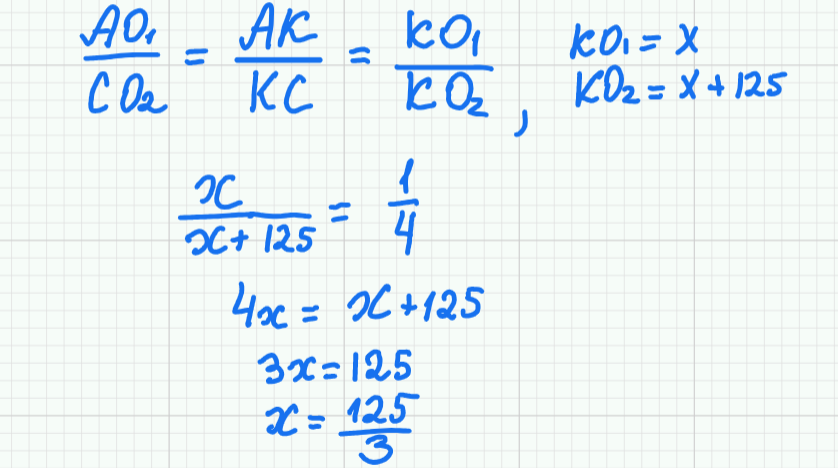 AO₁/CO₂ = AK/KC = KO₁/KO₂, KO₁ = x
KO₂ = x + 125
x/(x + 125) = 1/4
4x = x + 125
3x = 125
x = 125/3